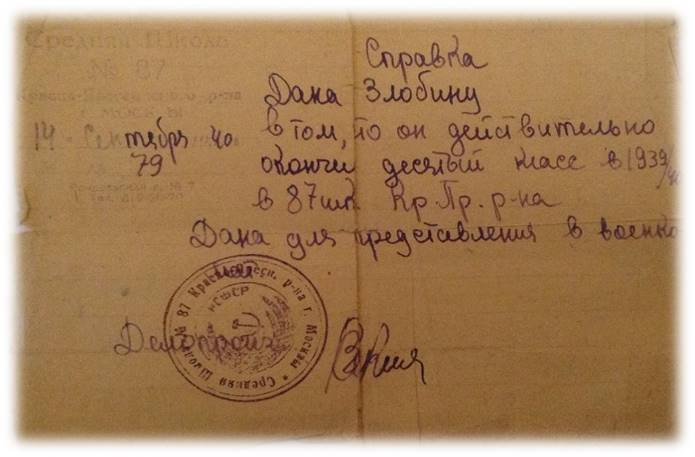 Средняя Школа
№ 87
Красно-Пресненского р-на
г. МОСКВЫ
14 Сентября 40
79
Справка
Дана Злобину
в том, то он действительно
окончил десятый класс в 1939/40
в 87 шк. Кр. Пр. р-на
Дана для представления в военко
мат
Средняя Школа № 87 Краснопресн. р-на г. Москвы
РСФСР